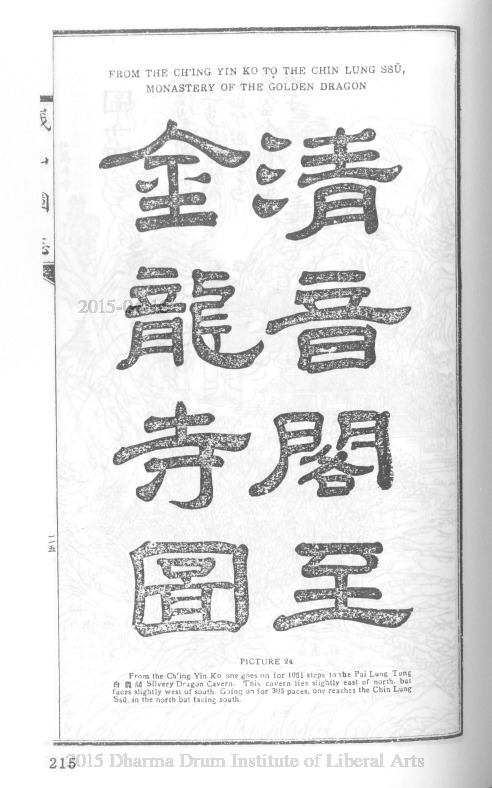 FROM THE CH'ING YIN KO TO THE CHIN LUNG SSŬ,
MONASTERY OF THE GOLDEN DRAGON
清音閣至
金龍寺圖
PICTURE 24
From the Ch'ing Yin Ko one goes on for 1081 steps to the Pai Lung Tung
白龍洞 Silvery Dragon Cavern. This cavern lies slightly east of north, but
faces slightly west of south. Going on for 305 paces, one reaches the Chin Lung
Ssŭ, in the north but facing south.
215
2015 Dharma Drum Institute of Liberal Arts